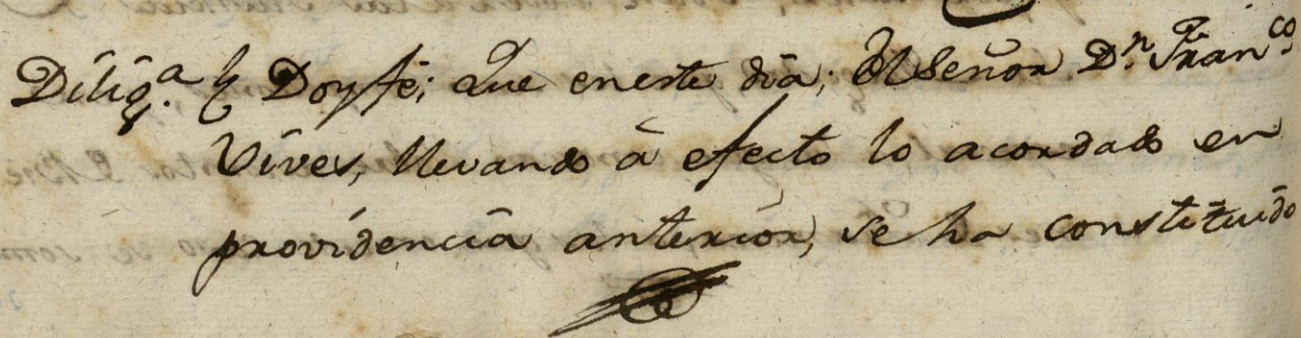 Dilig.ª Doyfé; Que eneste dia; El Señor D.n Fran.co
Vives, llevando à efecto lo acordado en
providencia anterior, se ha constituido